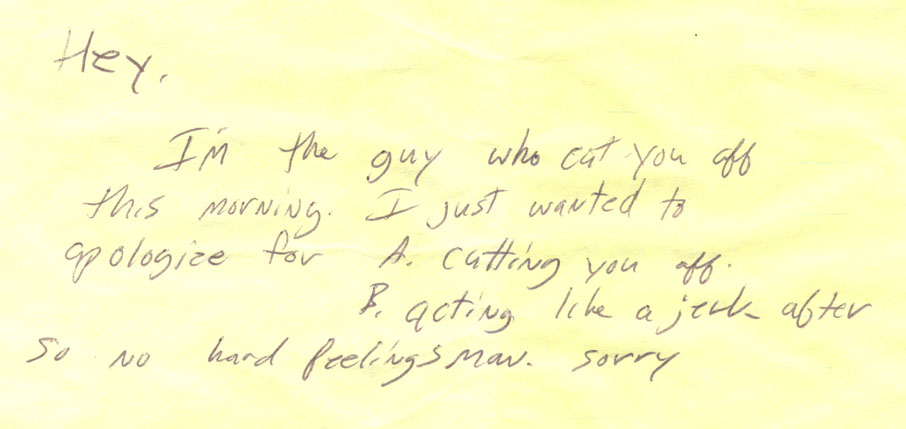 Hey,
I'm the guy who cut you off
this morning. I just wanted to
apologize for A. cutting you off.
B. acting like a jerk after
So no hard feelings man. sorry